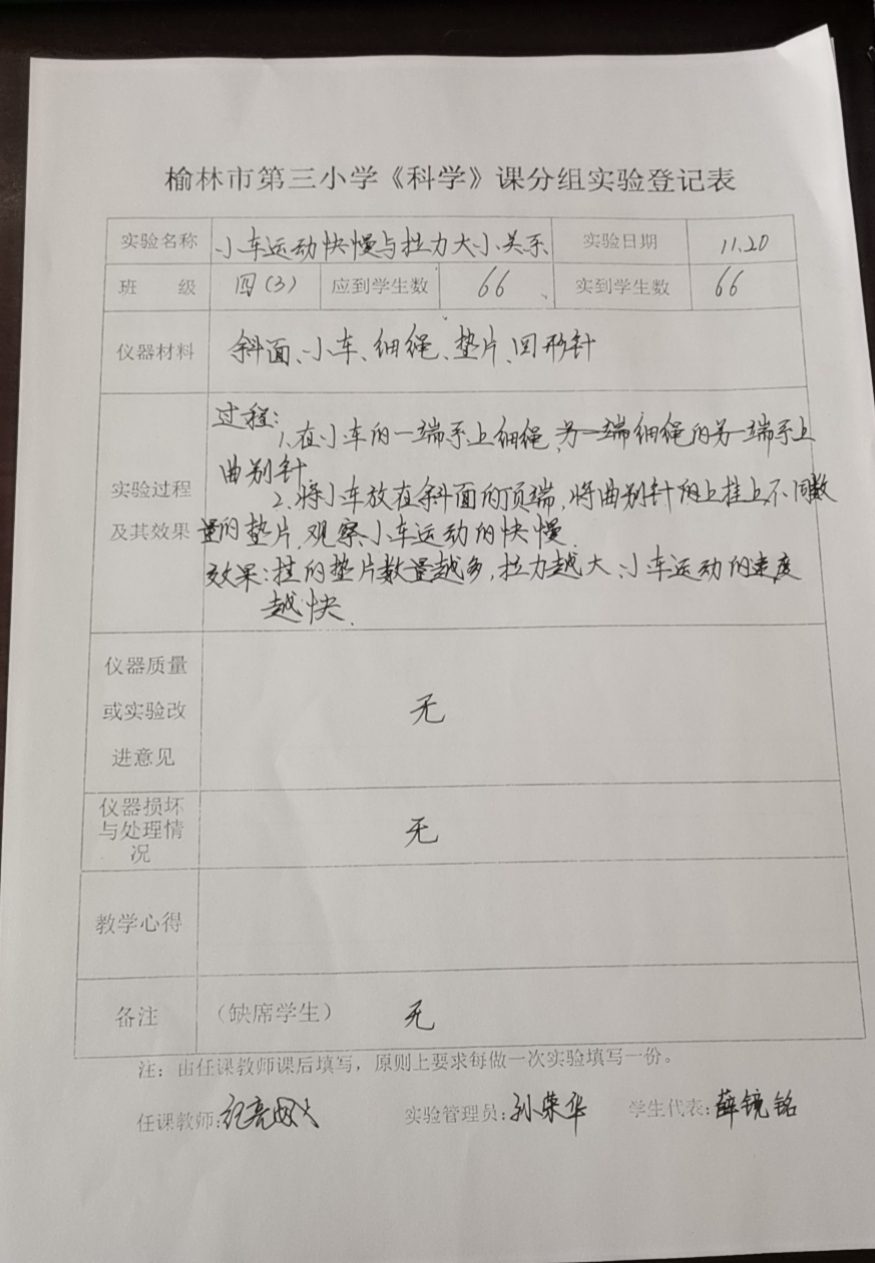 榆林市第三小学《科学》课分组实验登记表
实验名称 小车运动快慢与拉力大小关系 实验日期 11.20
班 级 四(3) 应到学生数 66 实到学生数 66
仪器材料 斜面、小车、细绳、垫片、回形针
过程:
1.在小车的一端系上细绳,另一端细绳的另一端系上
曲别针
实验过程 2.将小车放在斜面的顶端,将曲别针的上挂上不同数
及其效果 量的垫片,观察小车运动的快慢
效果:挂的垫片数量越多,拉力越大、小车运动的速度
越快.
仪器质量
或实验改 无
进意见
仪器损坏
与处理情 无
况
教学心得
备注 (缺席学生) 无
注:由任课教师课后填写,原则上要求每做一次实验填写一份。
任课教师: 实验管理员:孙荣华 学生代表:薛镜铭